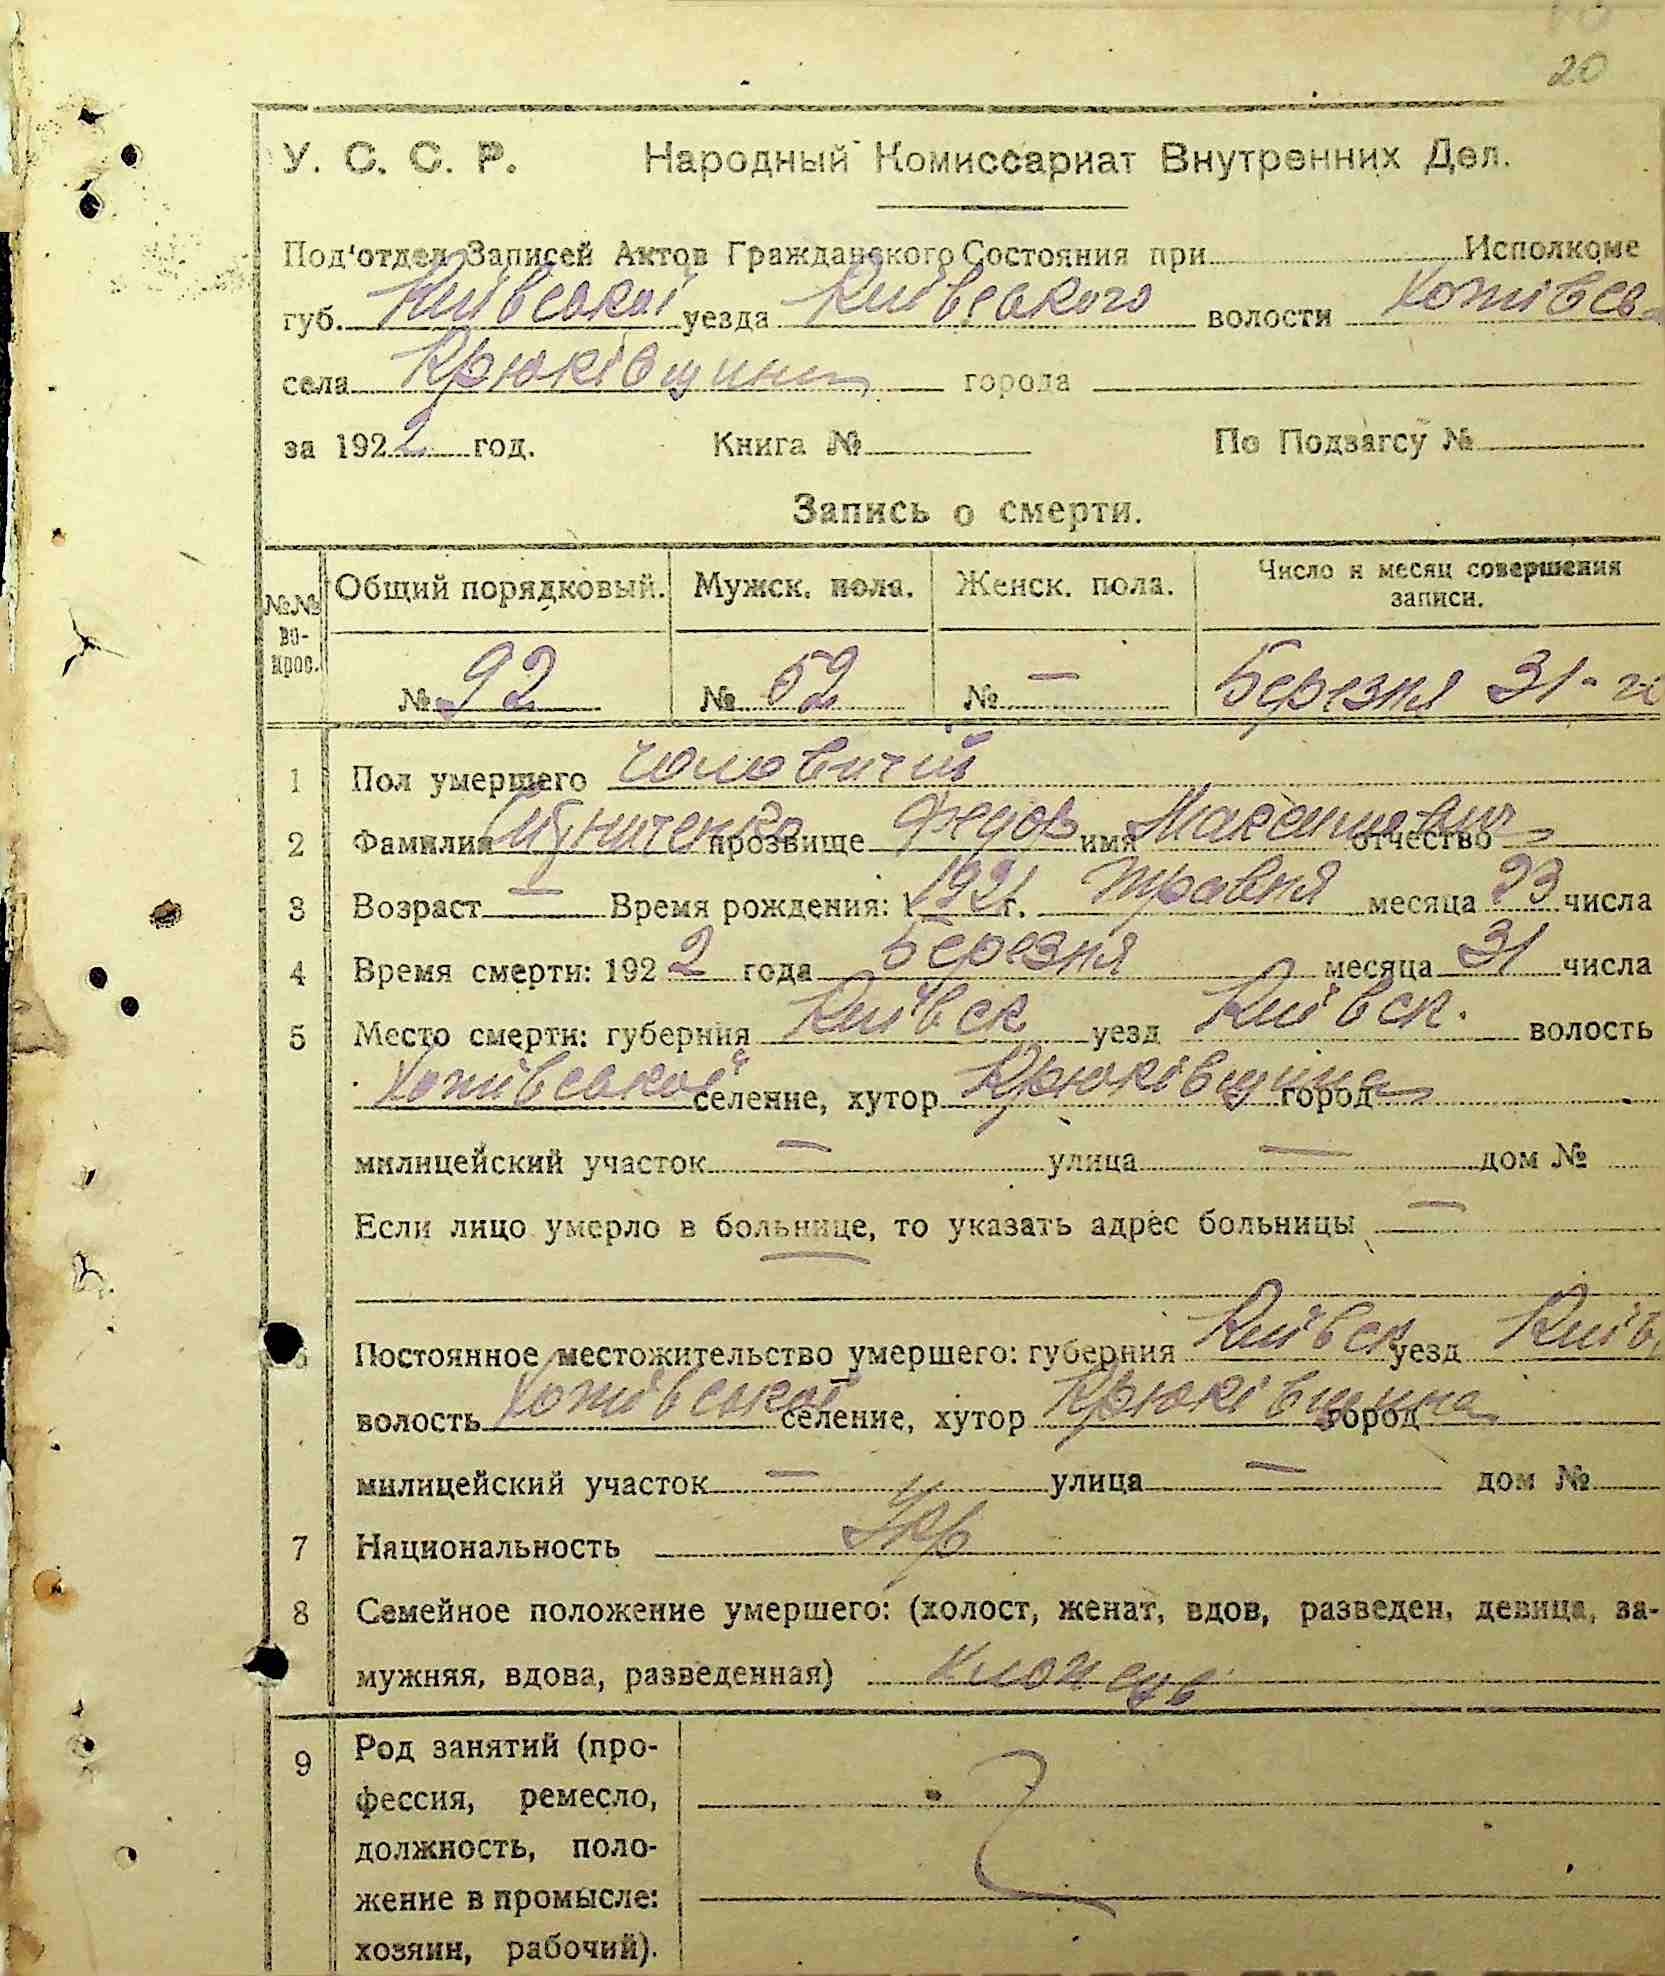 20
У. С. С. Р. Народный Комиссариат Внутренних Дел.
Под'отдел Записей Актов Гражданского Состояния при Исполкоме
губ. Київської уезда Київського волости Хотівсь-
села Крюківщини города
за 1922 год. Книга № По Подзагсу №
Запись о смерти.
№№ во-прос. Общий порядковый. Мужск. пола. Женск. пола. Число и месяц совершения записи.
№ 92 № 52 № — Березня 31-
1 Пол умершего чоловичій
2 Фамилия прозвище Федор имя Максимович отчество
3 Возраст — Время рождения: 1921 г. травня месяца 23 числа
4 Время смерти: 1922 года Березня месяца 31 числа
5 Место смерти: губерния Київск уезд Київск. волость
Хотівської селение, хутор Крюківщина город
милицейский участок — улица — дом №
Если лицо умерло в больнице, то указать адрес больницы —
—
6 Постоянное местожительство умершего: губерния Київск уезд Київ
волость Хотівської селение, хутор Крюківщина город
милицейский участок — улица — дом №
7 Национальность Укр
8 Семейное положение умершего: (холост, женат, вдов, разведен, девица, за-
мужняя, вдова, разведенная) хлопець
9 Род занятий (про-
фессия, ремесло,
должность, поло-
жение в промысле:
хозяин, рабочий).